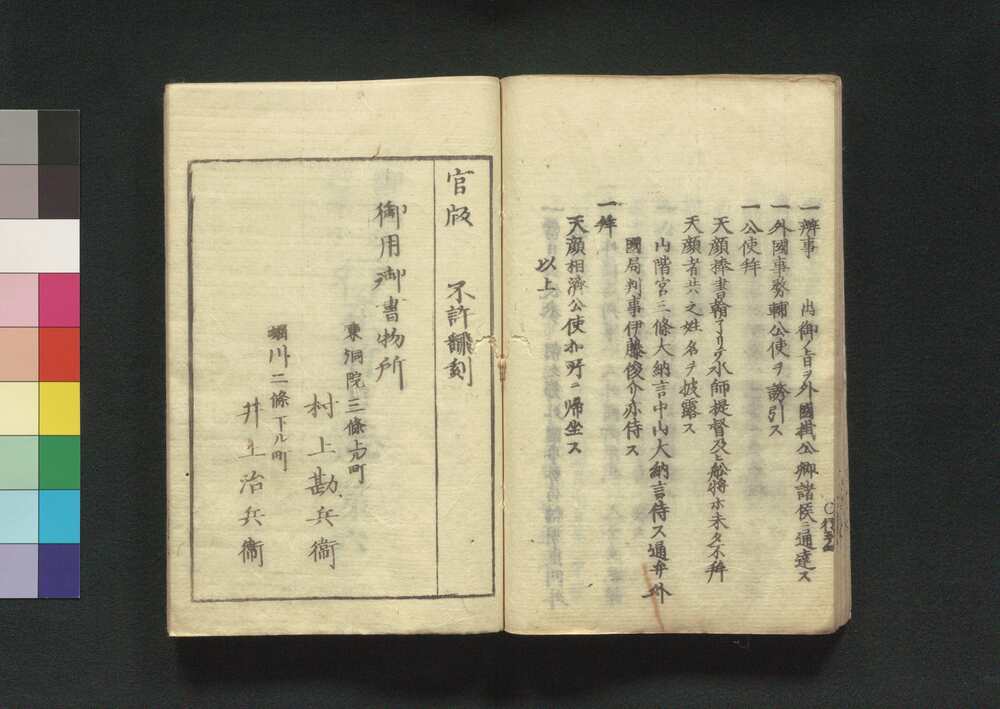 一辨事　出御ノ旨ヲ外國掛公卿諸侯ニ通達ス
一外國事務輔公使ヲ誘引ス
一公使拜
天顔捧書翰了リテ水師提督及ヒ舩將ホ未タ不拜
天顔者共之姓名ヲ披露ス
山階宮三條大納言中山大納言侍ス通弁外
國局判事伊藤俊介亦侍ス
一拜
天顔相濟公使ホ所ニ帰坐ス
以上
官版　不許飜刻
御用御書物所
東洞院三條上ル町
村上勘兵衞
堀川二條下ル町
井上治兵衞